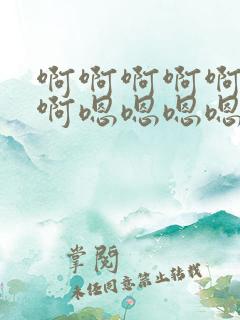 啊啊啊啊啊
啊嗯嗯嗯嗯
掌阅
未经同意禁止转载